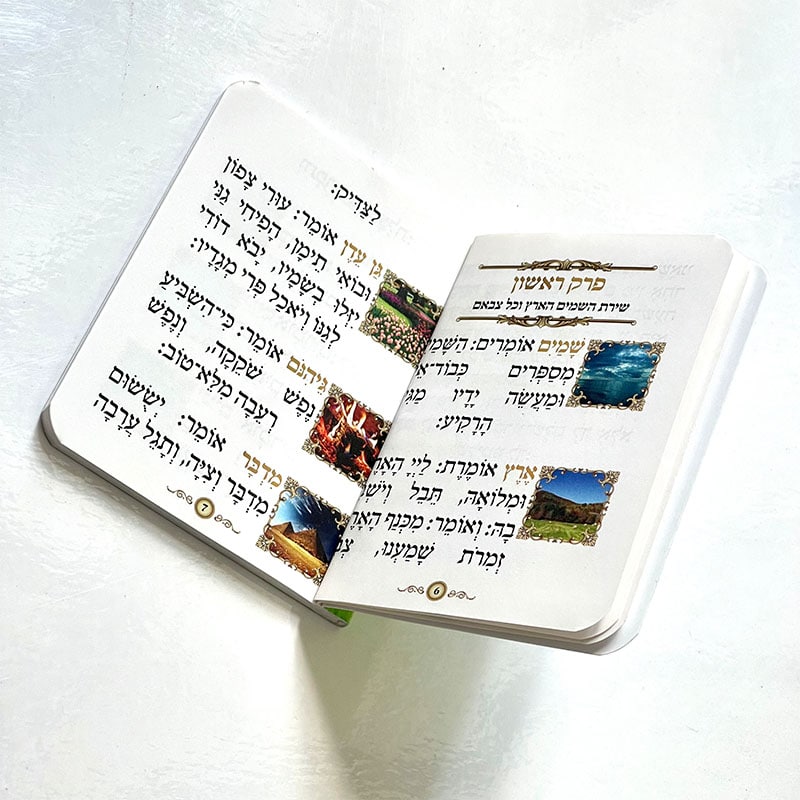 פרק ראשון
שירת השמים הארץ וכל צבאם
שָׁמַיִם אוֹמְרִים: הַשָּׁמַי
מְסַפְּרִים כְּבוֹד־א
וּמַעֲשֵׂה יָדָיו מַגִּ
הָרָקִיעַ:
אֶרֶץ אוֹמֶרֶת: לַייָ הָאָרֶ
וּמְלוֹאָהּ, תֵּבֵל וְיֹשְׁ
בָהּ: וְאוֹמֵר: מִכְּנַף הָאָרֶ
זְמִרֹת שָׁמַעְנוּ, צְב
6
לַצַּדִּיק:
גַּן עֵדֶן אוֹמֵר: עוּרִי צָפוֹן
וּבוֹאִי תֵימָן, הָפִיחִי גַנִּי
יִזְּלוּ בְשָׂמָיו, יָבֹא דוֹדִי
לְגַנּוֹ וְיֹאכַל פְּרִי מְגָדָיו:
גֵּיהִנֹּם אוֹמֵר: כִּי־הִשְׂבִּיעַ
נֶפֶשׁ שֹׁקֵקָה, וְנֶפֶשׁ
רְעֵבָה מִלֵּא־טוֹב:
מִדְבָּר אוֹמֵר: יְשֻׂשׂוּם
מִדְבָּר וְצִיָּה, וְתָגֵל עֲרָבָה
7